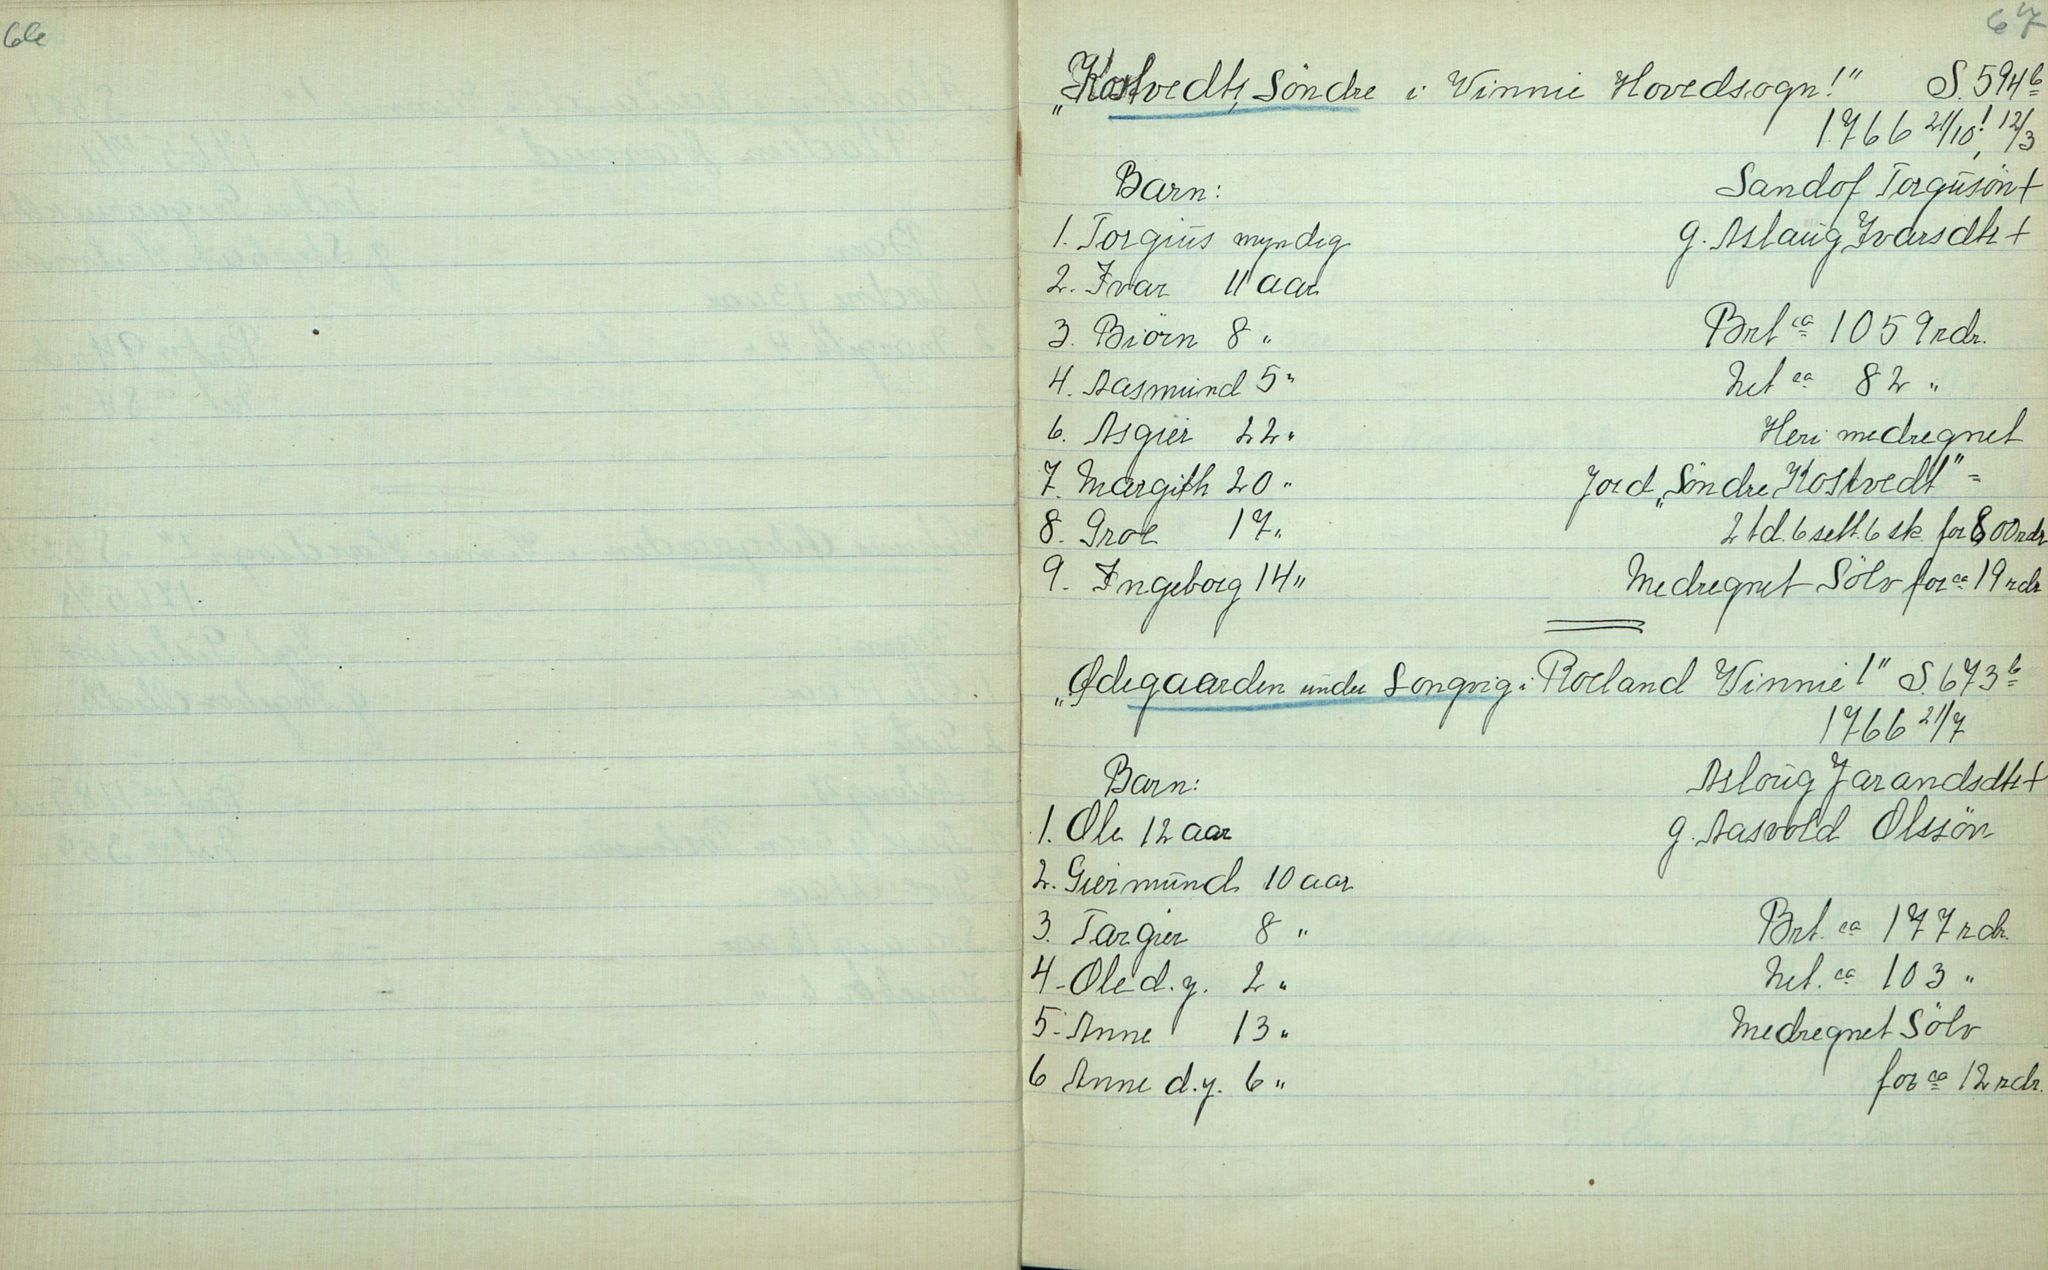 66
67
„Kostvedt, Söndre i Vinnie Hovedsogn!" S. 594 b
1766 21/10! 12/3
Barn: Sandof Torgusön +
1. Torgius myndig g. Aslaug Ivarsdtr +
2. Ivar 11 aar
3. Biörn 8 " Brt ca 1059 rdr.
4. Aasmund 5 " Net ca 82 "
6. Asgier 22 " Heri medregnet
7. Margith 20 " Jord „Söndre Kostvedt" =
8. Groe 17 " 2 td. 6 sett. 6 sk. for 800 rdr
9. Ingeborg 14 " Medregnet Sölv for ca 19 rdr
„Ødegaarden under Songvig i Roeland Vinnie!" S. 673 b
1766 21/7
Barn: Asloug Jarandsdtr +
1. Ole 12 aar g. Aasvold Olssön
2. Giermund 10 aar
3. Targier 8 " Brt. ca 177 rdr.
4. Ole d.y. 2 " Net. ca 103 "
5. Anne 13 " Medregnet Sölv
6 Anne d.y. 6 " for ca 12 rdr.